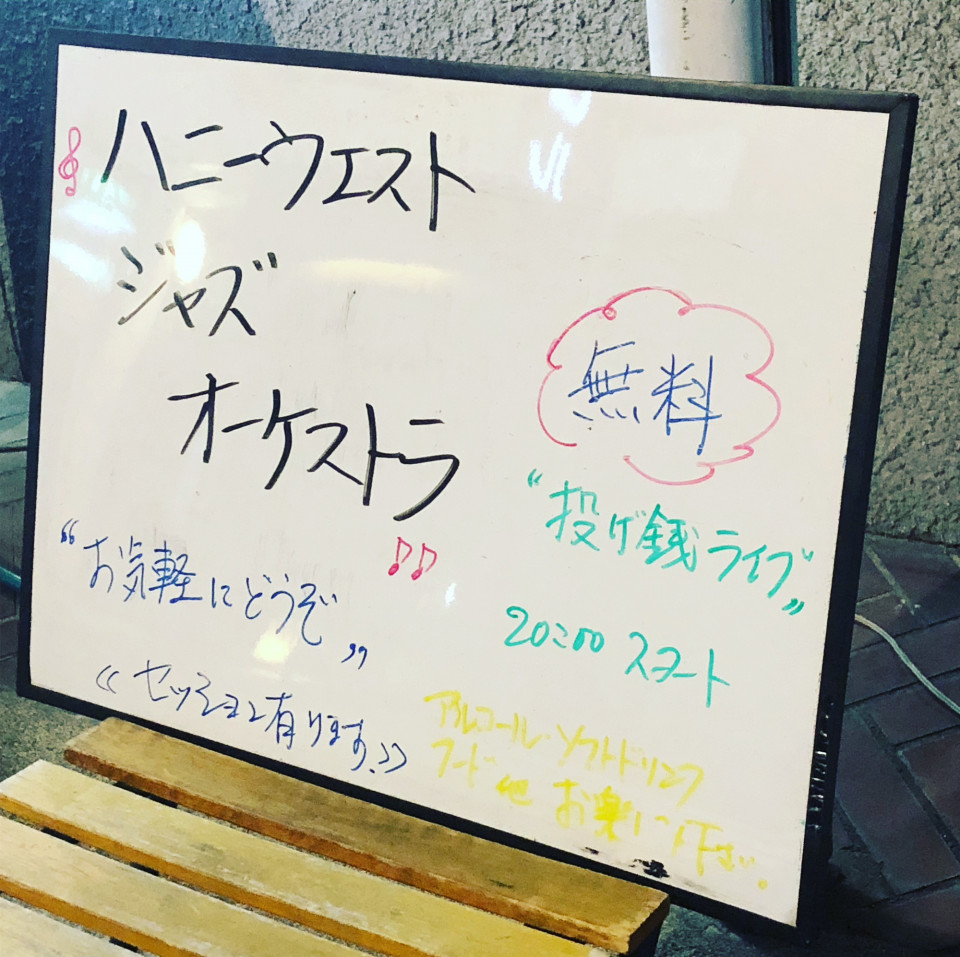 ハニーウエスト
ジャズ
オーケストラ
無料
“投げ銭ライブ”
“お気軽にどうぞ”
20:00 スタート
《セッション有ります。》
アルコール・ソフトドリンク
フード 他 お楽しみ下さい。